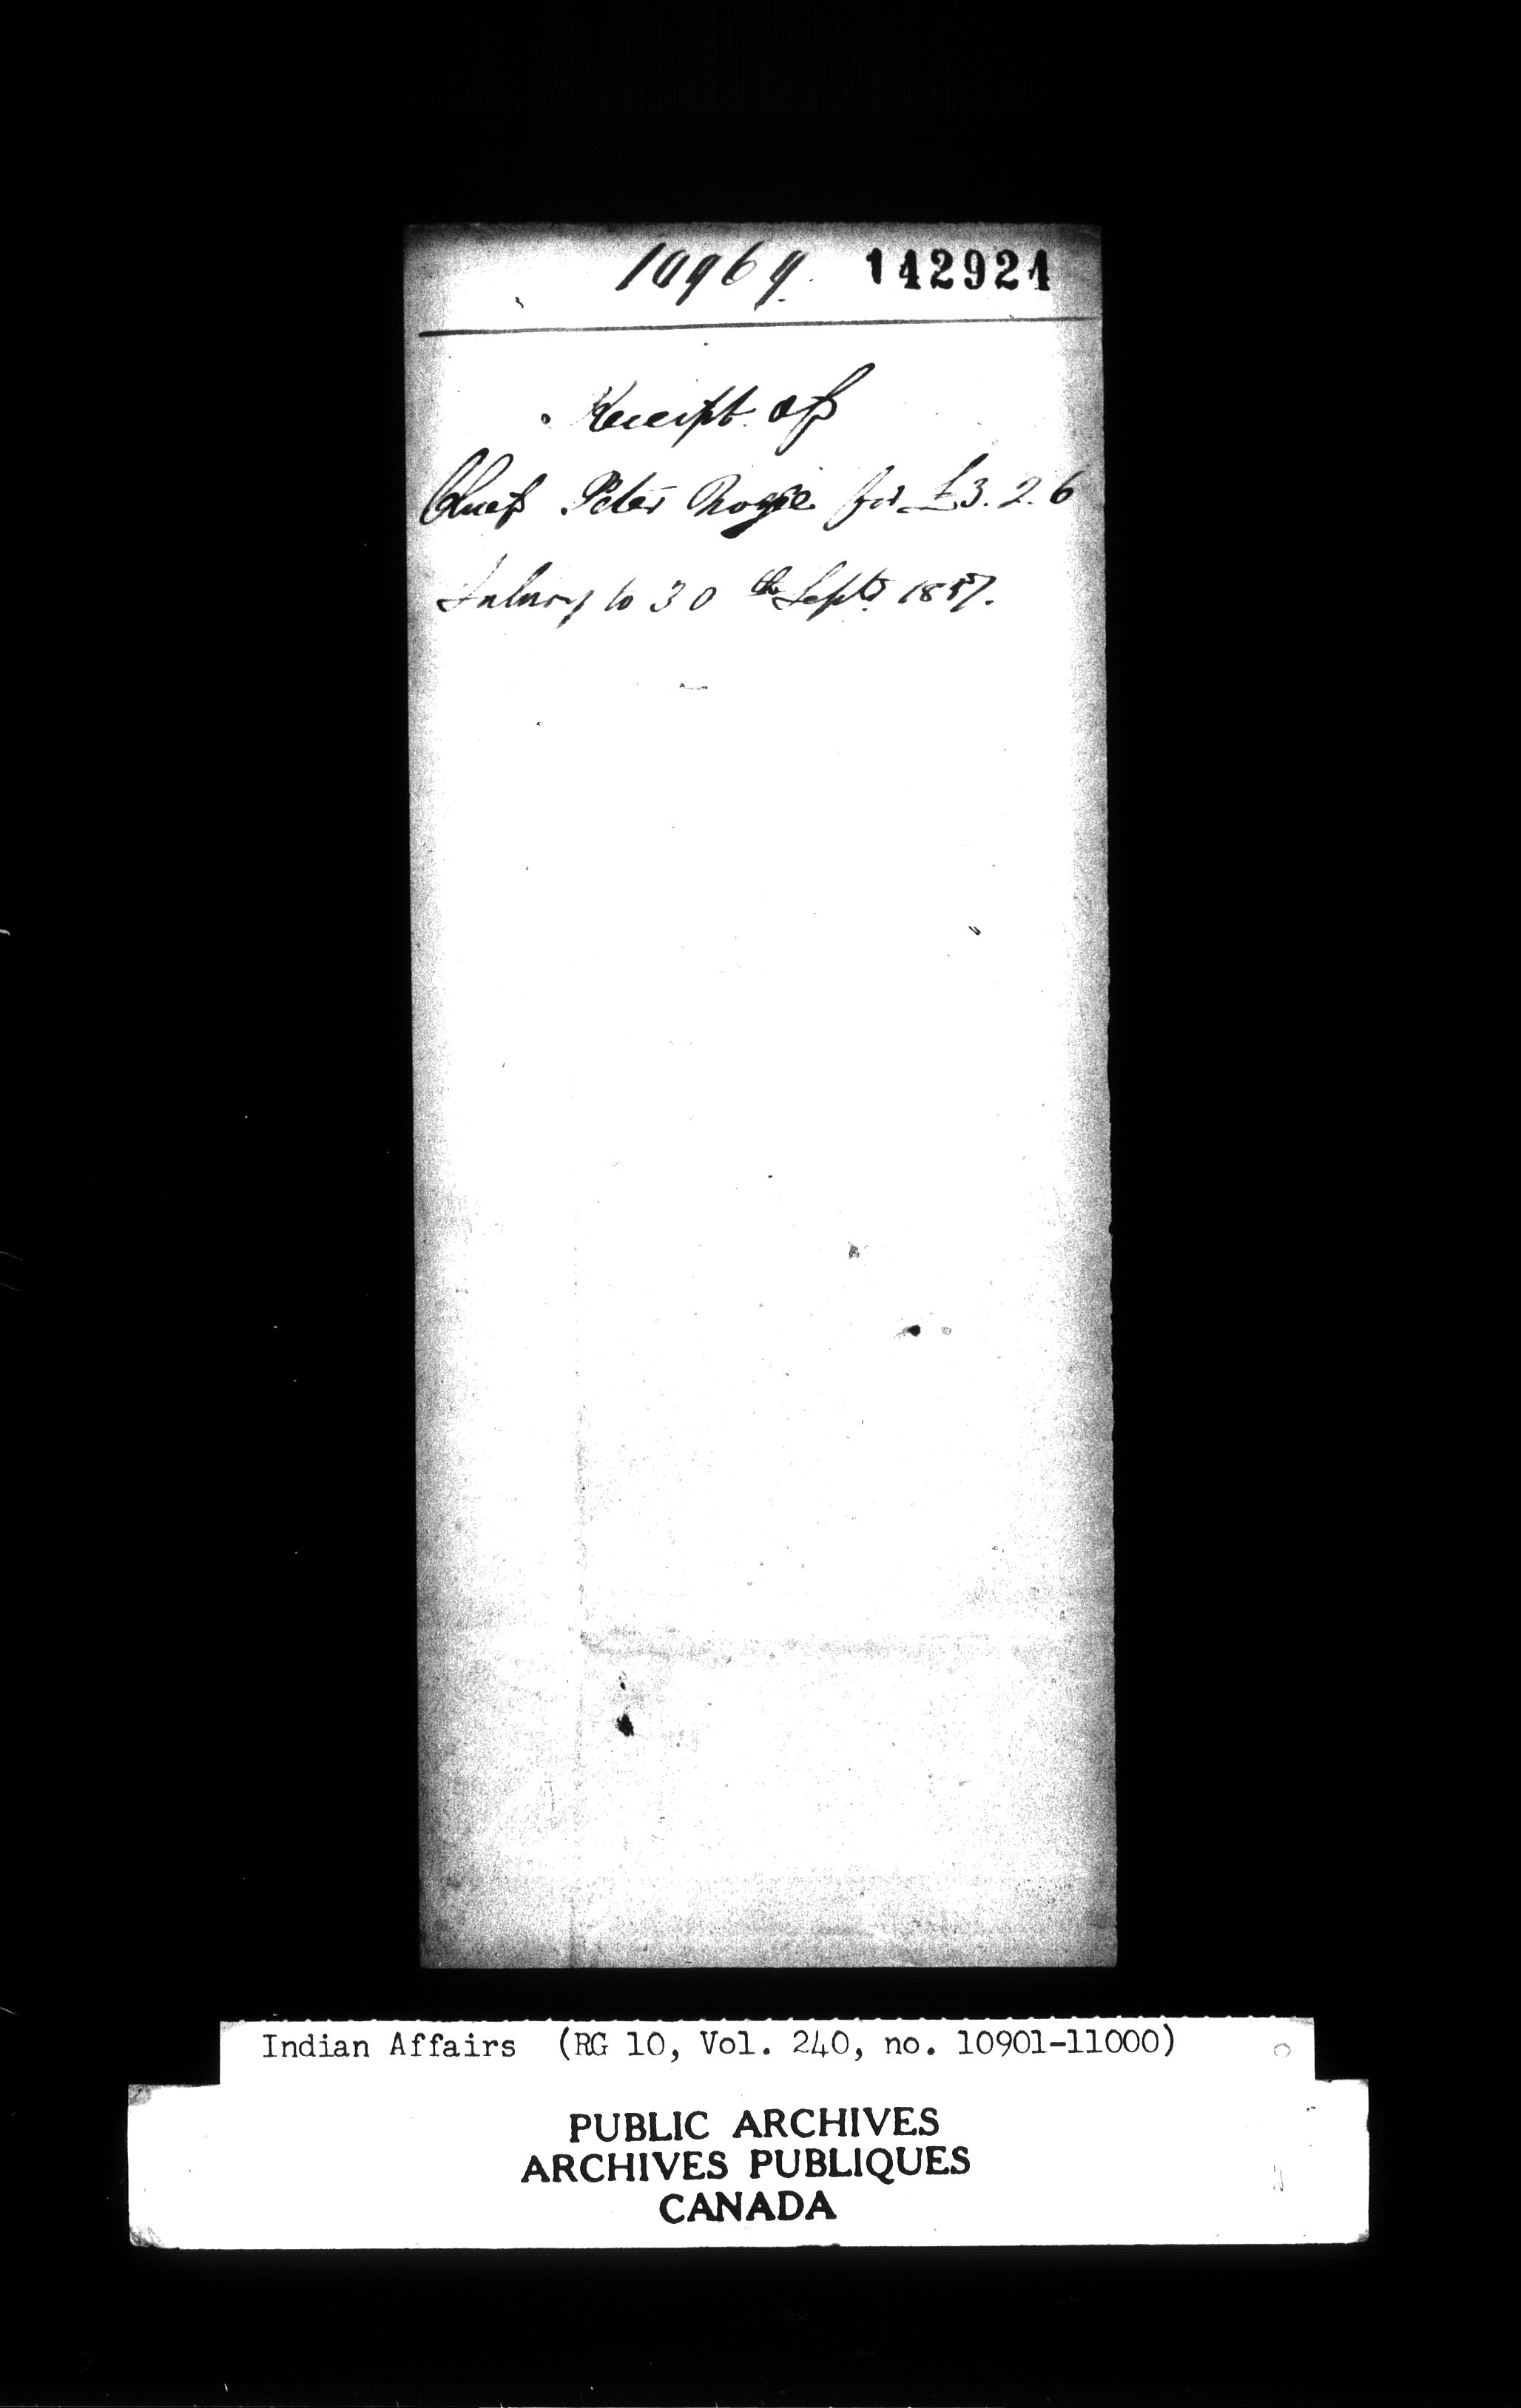 10969. 142924
Receipt of
Chief Peter Nogie for £3.2.6
Salary to 30th Septr 1857.
Indian Affairs (RG 10, Vol. 240, no. 10901-11000)
PUBLIC ARCHIVES
ARCHIVES PUBLIQUES
CANADA